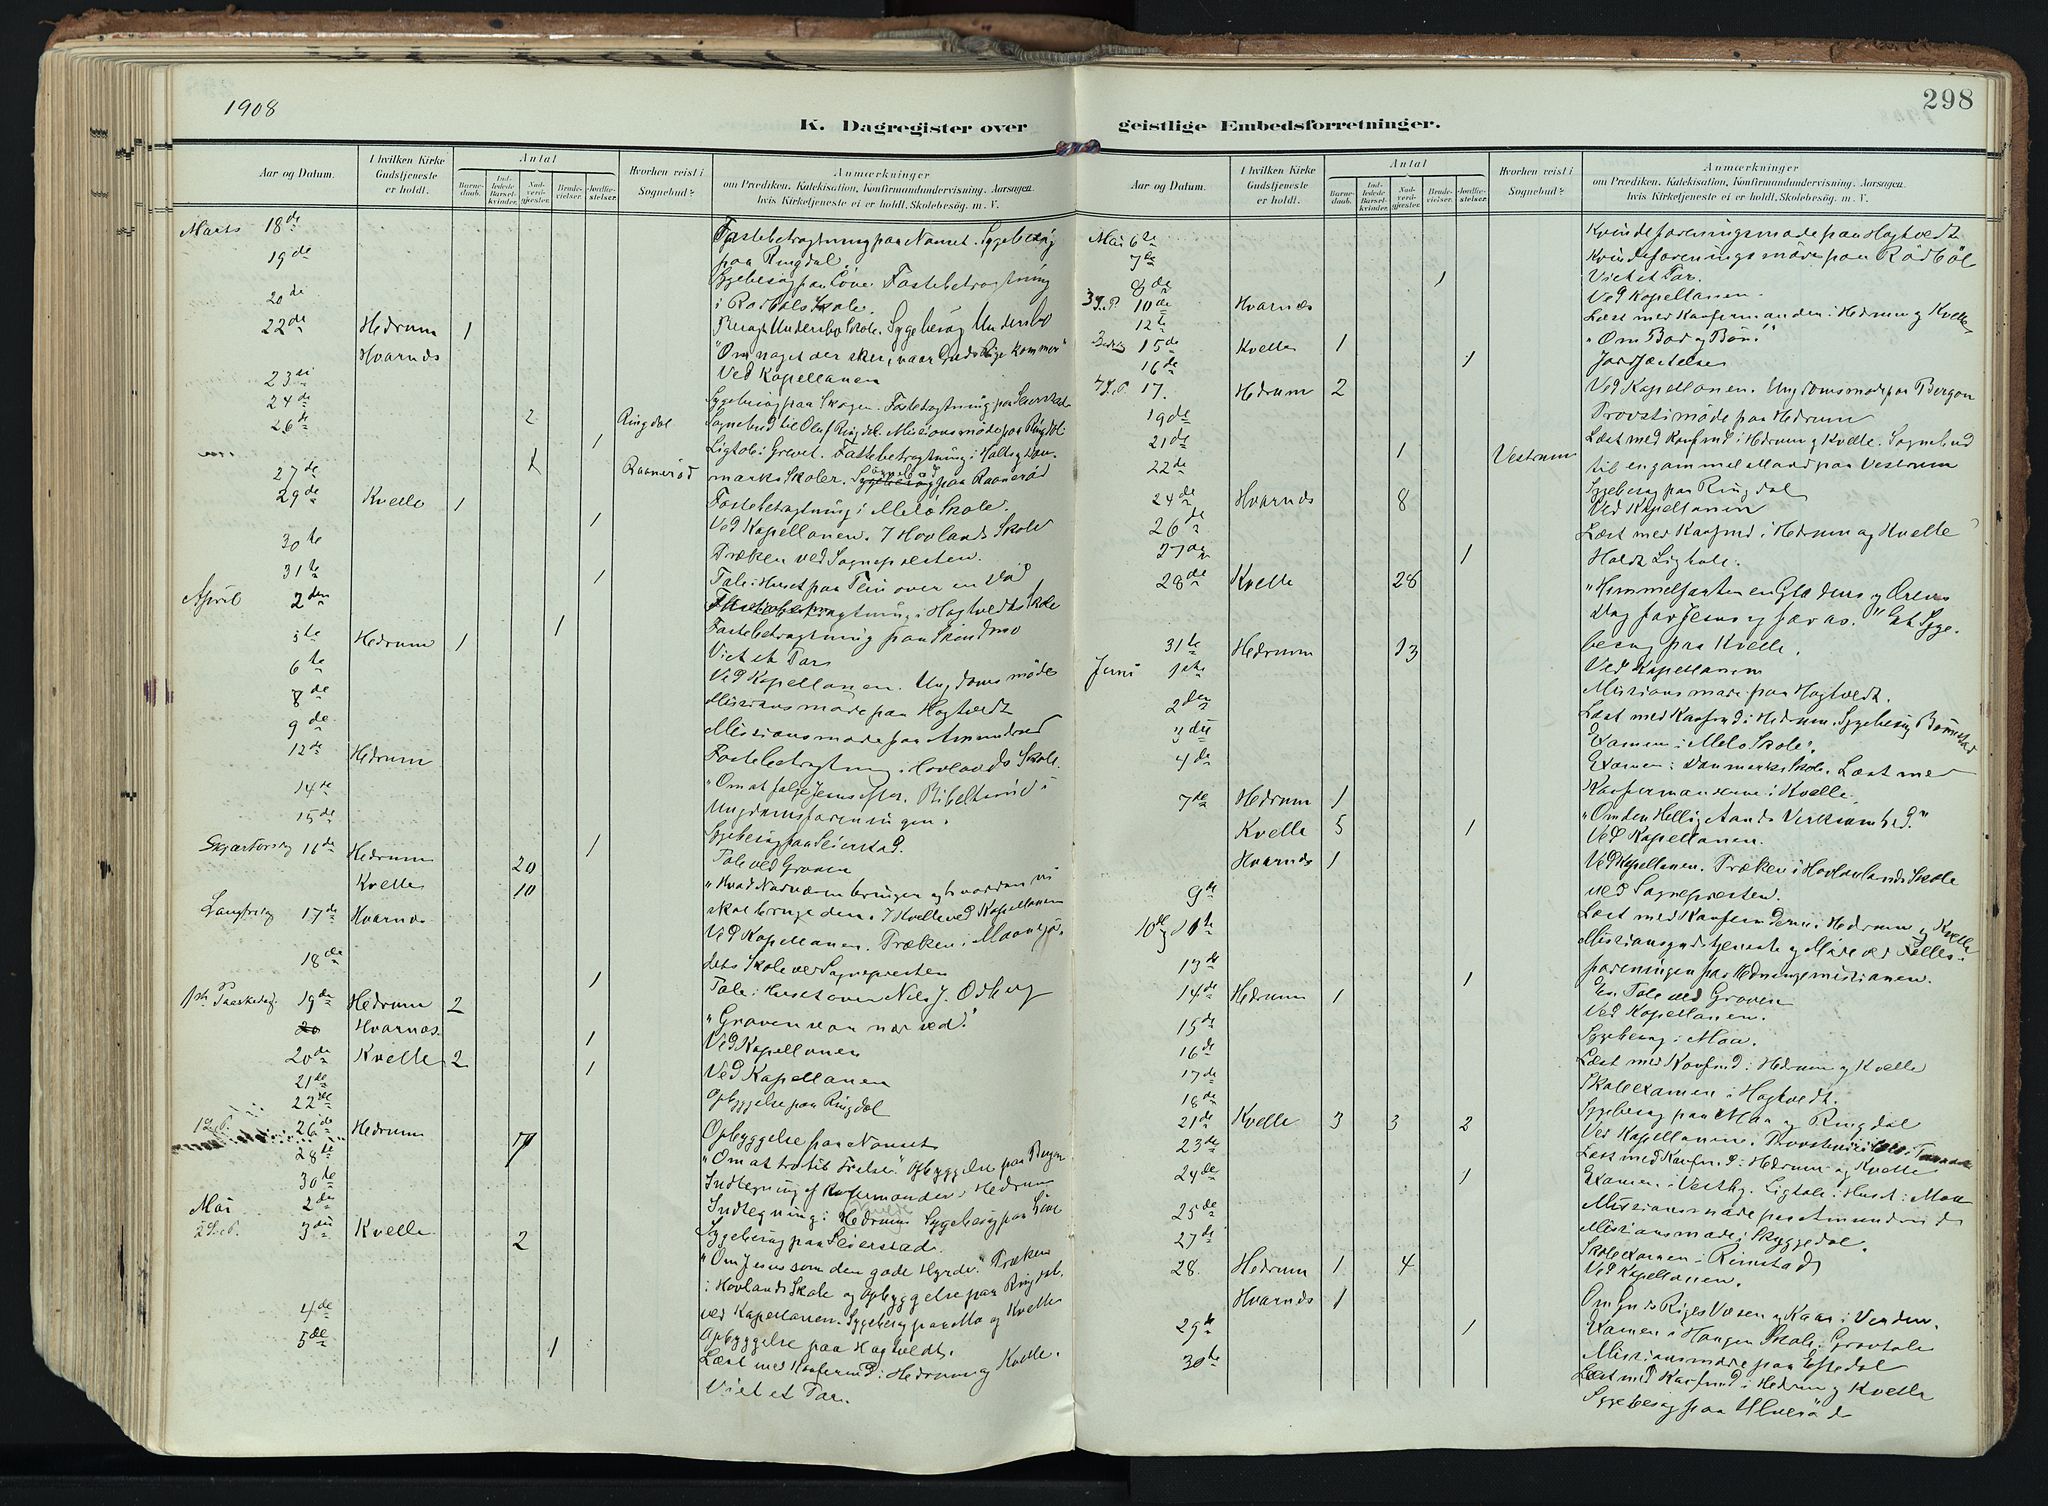 1908
298
K. Dagregister over geistlige Embedsforretninger.
Aar og Datum.
I hvilken Kirke Gudstjeneste er holdt.
Antal
Barnedaab.
Indledede Barselkvinder.
Nadverdgjester.
Brudevielser.
Jordfæstelser.
Hvorhen reist i Sognebud?
Anmærkninger
om Prædiken, Katekisation, Konfirmandundervisning. Aarsagen,
hvis Kirketjeneste ei er holdt. Skolebesøg. m. V.
Marts 18de Fastebetragtning paa Nanset. Sygebesøg
19de paa Ringdal.
Sygebesøg paa Løve. Fastebetragtning
20de i Rødbøl Skole.
22de Hedrum 1
Hvarnes "Om noget der sker, naar Guds Rige kommer"
Ved Kapellanen
24de Sygebesøg paa Skogen. Fastebetragtning paa
26de 2 Ringdal Sognebud til Olaf Ringdal. Missionsmøde paa Ringdal
1 Ligtale i Grevet. Fastebetragtning i
27de 1 Raanerød marks Skoler. paa Raanerød
29de Kvelle 1 Fastebetragtning i Melø Skole.
1 Ved Kapellanen. I Hovlands Skole
30te Præken ved Sognepresten.
31te 1 Tale i Huset paa
April 2den Fastebetragtning i Hagtvedt Skole
1 Fastebetragtning paa
5te Hedrum 1 Viet et Par
6te Ved Kapellanen. Ungdomsmøde
8de Missionsmøde paa Hagtvedt
9de Missionsmøde paa Amundrød
12de Hedrum Fastebetragtning i Hovlands Skole.
14de "Om at følge Jesus efter. Bibeltime i
15de Ungdomsforeningen.
1 Sygebesøg paa Seierstad.
Skjærtorsdag 16de Hedrum 20 Tale ved Graven
Kvelle 10 "Hvad Nadveren bringer og hvordan vi
Langfredag 17de Hvarnes skal bruge den. I Kvelle ved Kapellanen
Ved Kapellanen. Præken i
18de dets Skole ved Sognepresten
1 Tale i Huset over Nels J. Odberg
1ste Paaskedag 19de Hedrum 2 "Graven
20 Hvarnes 1 Ved Kapellanen
20de Kvelle 2 1 Ved Kapellanen
21de
22de Opbyggelse paa Ringdal
26de Hedrum 17 Opbyggelse paa Nanset
28de "Om at tro til Frelse" Opbyggelse paa Bergen
30te Indtegning af Konfirmander i Hedrum
Mai 2de Indtegning i Sygebesøg paa
3die Kvelle 2 Sygebesøg paa Seierstad.
"Om Jesus som den gode Hyrde." Præken
i Hovlands Skole og Opbyggelse paa Ringdal.
4de ved Kapellanen. Sygebesøg paa Mo og Kvelle
5de 1 Opbyggelse paa Hagtvedt.
Læst med Konfirmand i Hedrum og Kvelle.
Viet et Par.
Aar og Datum.
I hvilken Kirke Gudstjeneste er holdt.
Antal
Barnedaab.
Indledede Barselkvinder.
Nadverdgjester.
Brudevielser.
Jordfæstelser.
Hvorhen reist i Sognebud?
Anmærkninger
om Prædiken, Katekisation, Konfirmandundervisning. Aarsagen,
hvis Kirketjeneste ei er holdt. Skolebesøg. m. V.
Mai 6te Kvindeforeningsmøde paa Hagtvedt
7de Kvindeforeningsmøde paa Rødbøl
8de 1 Viet et Par.
10de Hvarnes Ved Kapellanen.
12te Læst med Konfirmanden i Hedrum og Kvelle
15de Kvelle 1 "Om Bod og Bøn."
16de 1 Jordfæstelse
17. Hedrum 2 Ved Kapellanen. Ungdomsmøde paa Bergan
19de Provstimøde paa Hedrum
21de 1 Vestrum Læst med Konfmd i Hedrum og Kvelle. Sognebud
22de til en gammel Mand paa Vestrum
Sygebesøg paa Ringdal
24de Hvarnes 8 Ved Kapellanen
26de Læst med Konfmd i Hedrum og Kvelle
27de 1 Holdt Ligtale.
28de Kvelle 28 "Himmelfarten en Glædens og Ærens
Dag for Jesus og for os." Et Syge-
besøg paa Kvelle.
31te Hedrum 13 Ved Kapellanen
Juni 1ste Missionsmøde paa Hagtvedt.
2den Læst med Konfmd i Hedrum. Sygebesøg
3die Examen i Melø Skole.
4de Examen i Danmarks Skole. Læst med
Konfirmanderne i Kvelle.
7de Hedrum 1 "Om den Hellig Aands Virksomhed."
Kvelle 5 1 Ved Kapellanen.
Hvarnes 1 Ved Kapellanen. Præken i Hovlands Skole
ved Sognepresten.
9de Læst med Konfirmanderne i Hedrum og Kvelle
10de og 11te Missionsgudstjeneste og Møde ved Fælles-
foreningen for Hedningemissionen.
13de 1 En Tale ved Graven
14de Hedrum 1 Ved Kapellanen.
15de Sygebesøg i Moa.
16de Læst med Konfmd i Hedrum og Kvelle
17de Skoleexamen i Hagtvedt.
18de Sygebesøg paa Moa og Ringdal
21de Kvelle 3 3 2 Ved Kapellanen.
23de Læst med Konfmd i Hedrum og Kvelle
24de 1 Examen i Vestby. Ligtale i Huset i Moa
25de Missionsmøde paa Amundrød
27de Missionsmøde i Skyggedal.
Skoleexamen i Rimstad
28. Hedrum 1 4 Ved Kapellanen.
Hvarnes 1 Om Guds Riges Væsen og Kaar i Verden.
29de 1 Examen i Haugen Skole. Gravtale
30te Missionsmøde paa Eftedal
Læst med Konfmd i Hedrum og Kvelle
Sygebesøg paa